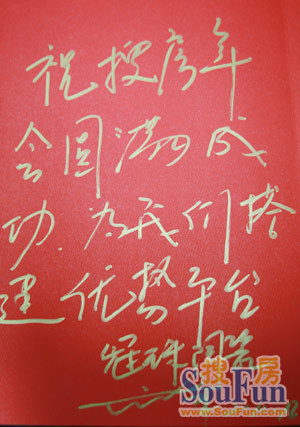 祝搜房年
会圆满成
功.为我们搭
建优势平台
冠珠陶瓷
搜房
SouFun
www.SouFun.com